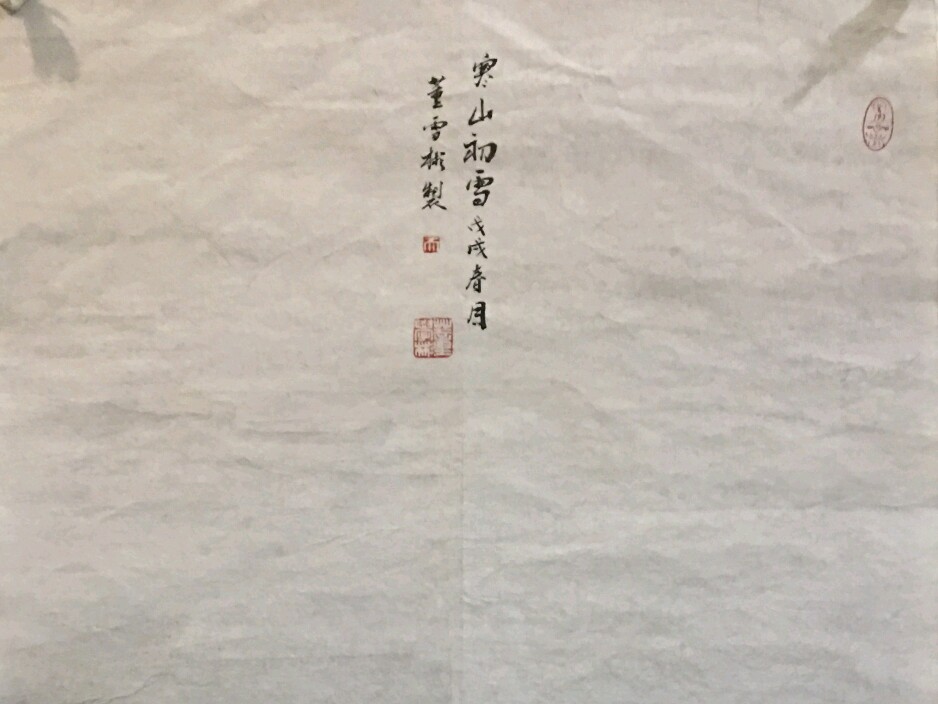 寒山初雪戊戌春月
董雪彬製